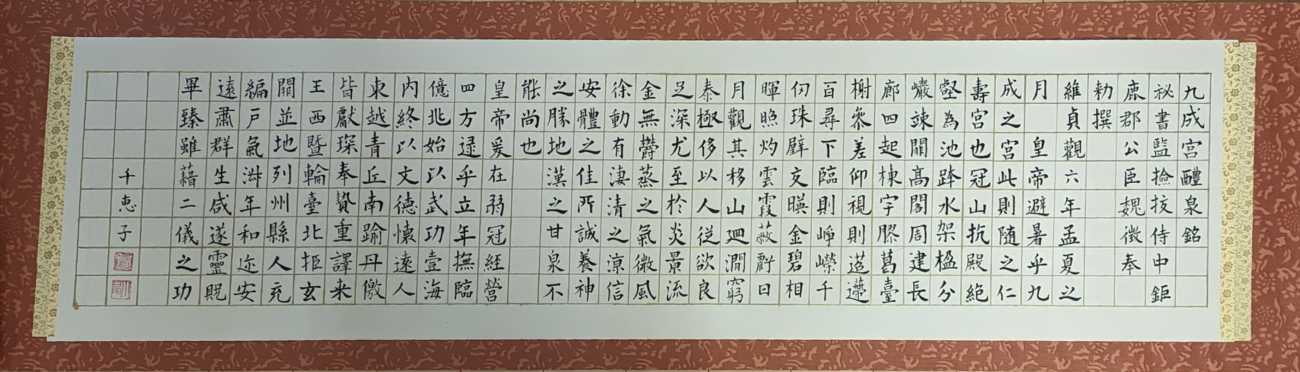 九成宮醴泉銘
祕書監撿挍侍中鉅
鹿郡公臣魏徵奉
勅撰
維貞觀六年孟夏之
月 皇帝避暑乎九
成之宮此則隨之仁
壽宮也冠山抗殿絕
壑為池跨水架楹分
巖竦闕高閣周建長
廊四起棟宇膠葛臺
榭參差仰視則迢遰
百尋下臨則崢嶸千
仞珠璧交暎金碧相
暉照灼雲霞蔽虧日
月觀其移山迴澗窮
泰極侈以人從欲良
足深尤至於炎景流
金無鬱蒸之氣微風
徐動有淒清之涼信
安體之佳所誠養神
之勝地漢之甘泉不
能尚也
皇帝爰在弱冠經營
四方逮乎立年撫臨
億兆始以武功壹海
內終以文德懷遠人
東越青丘南踰丹儌
皆獻琛奉贄重譯来
王西暨輪臺北拒玄
闕並地列州縣人充
編戶氣淑年和迩安
遠肅群生咸遂靈貺
畢臻雖藉二儀之功
千恵子